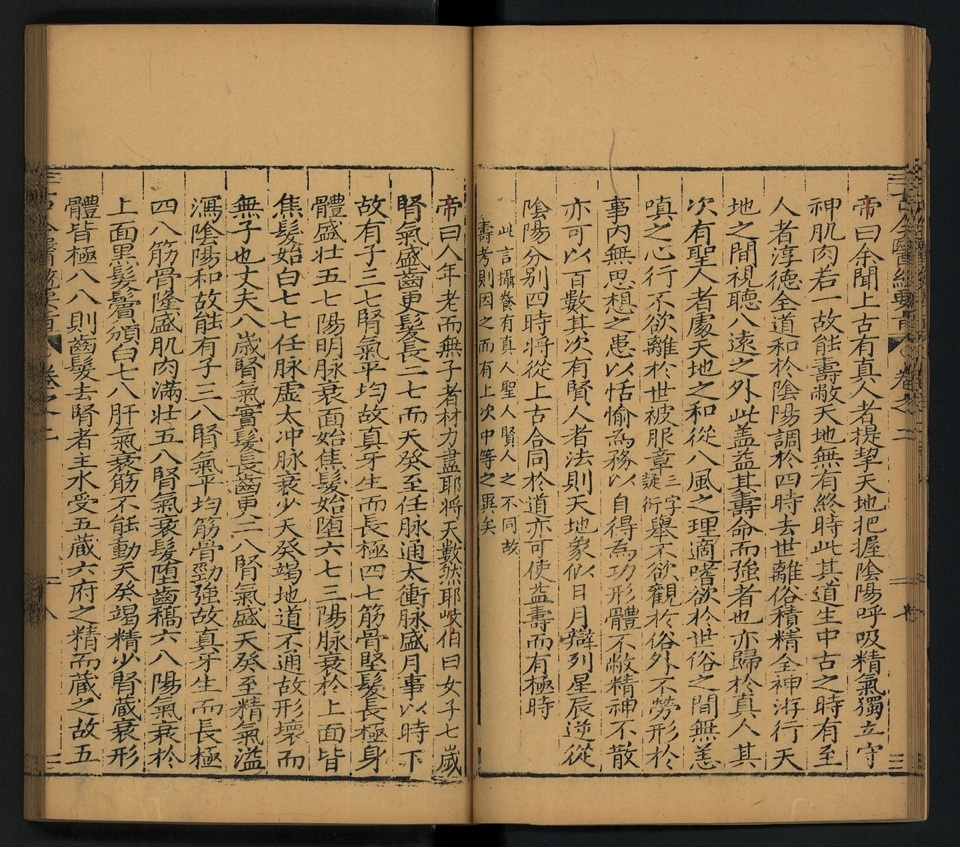 帝曰余聞上古有真人者提挈天地把握陰陽呼吸精氣獨立守
神肌肉若一故能壽敝天地無有終時此其道生中古之時有至
人者淳德全道和於陰陽調於四時去世離俗積精全神游行天
地之間視聽八遠之外此盖益其壽命而強者也亦歸於真人其
次有聖人者處天地之和從八風之理適嗜欲於世俗之間無恚
嗔之心行不欲離於世被服章三字衍舉不欲觀於俗外不勞形於
事內無思想之患以恬愉為務以自得為功形體不敝精神不散
亦可以百數其次有賢人者法則天地象似日月辯列星辰逆從
陰陽分別四時將從上古合同於道亦可使益壽而有極時
此言攝養有真人聖人賢人之不同故
壽考則因之而有上次中等之異矣
帝曰人年老而無子者材力盡耶將天數然耶歧伯曰女子七歲
腎氣盛齒更髮長二七而天癸至任脉通太衝脉盛月事以時下
故有子三七腎氣平均故真牙生而長極四七筋骨堅髮長極身
體盛壯五七陽明脉衰面始焦髮始墮六七三陽脉衰於上面皆
焦髮始白七七任脉虛太冲脉衰少天癸竭地道不通故形壞而
無子也丈夫八歲腎氣實髮長齒更二八腎氣盛天癸至精氣溢
瀉陰陽和故能有子三八腎氣平均筋骨勁強故真牙生而長極
四八筋骨隆盛肌肉滿壯五八腎氣衰髮墮齒槁六八陽氣衰於
上面黑髮鬢頒白七八肝氣衰筋不能動天癸竭精少腎蔵衰形
體皆極八八則齒髮去腎者主水受五蔵六府之精而蔵之故五
卷之二
八